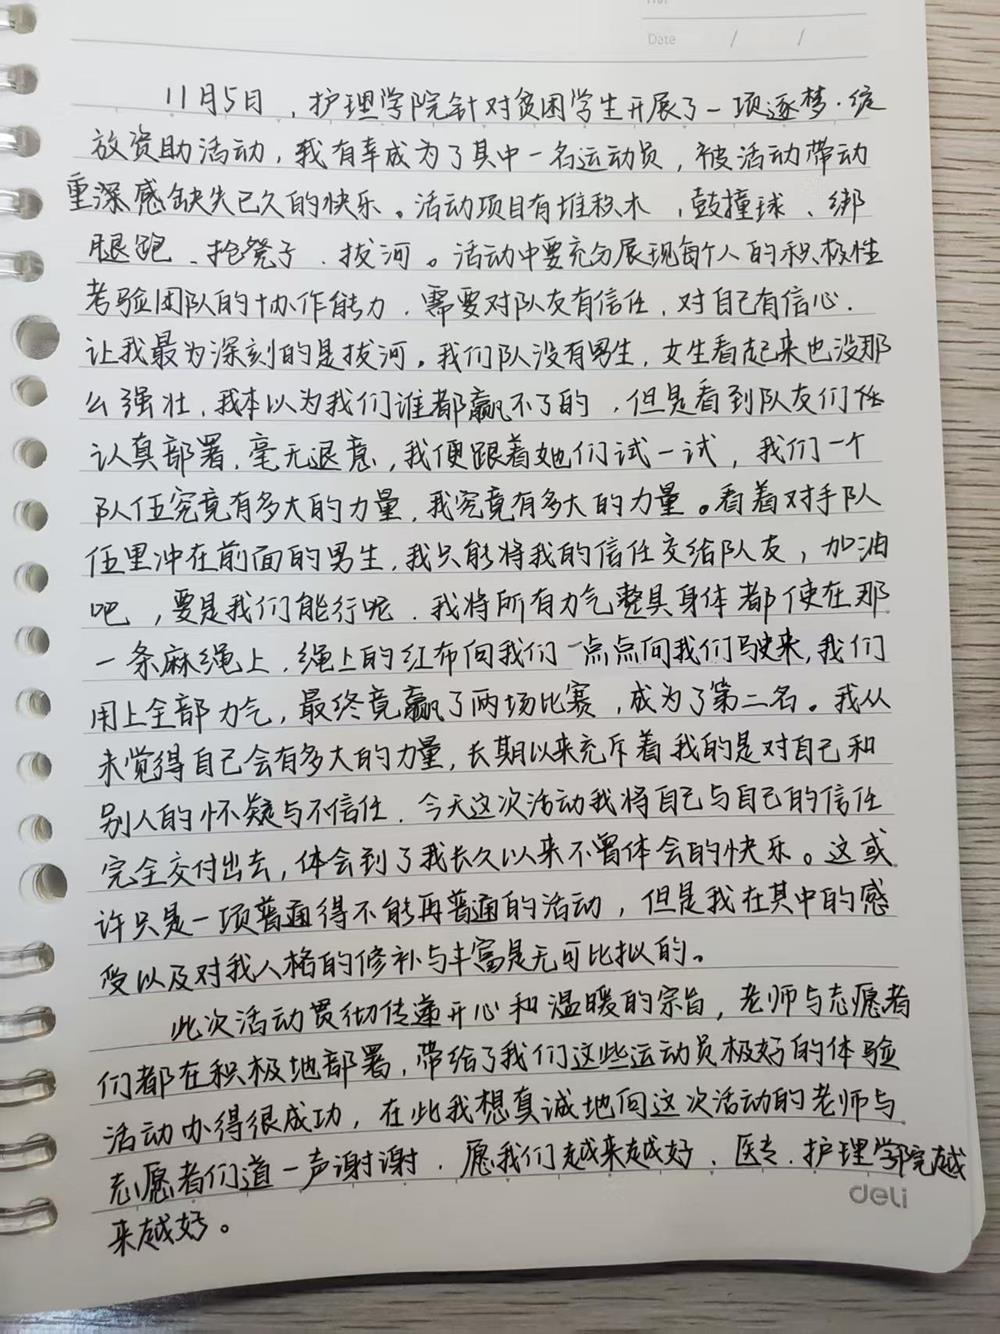 Date / /
11月5日，护理学院针对贫困学生开展了一项逐梦·绽
放资助活动，我有幸成为了其中一名运动员，被活动带动
重深感缺失已久的快乐。活动项目有堆积木、鼓撞球、绑
腿跑、抢凳子、拔河。活动中要充分展现每个人的积极性
考验团队的协作能力，需要对队友有信任，对自己有信心.
让我最为深刻的是拔河。我们队没有男生，女生看起来也没那
么强壮，我本以为我们谁都赢不了的，但是看到队友们
认真部署，毫无退意，我便跟着她们试一试，我们一个
队伍究竟有多大的力量，我究竟有多大的力量。看着对手队
伍里冲在前面的男生，我只能将我的信任交给队友，加油
吧，要是我们能行呢.我将所有力气整具身体都使在那
一条麻绳上，绳上的红布向我们一点点向我们驶来，我们
用上全部力气，最终竟赢了两场比赛，成为了第二名。我从
未觉得自己会有多大的力量，长期以来充斥着我的是对自己和
别人的怀疑与不信任.今天这次活动我将自己与自己的信任
完全交付出去，体会到了我长久以来不曾体会的快乐。这或
许只是一项普通得不能再普通的活动，但是我在其中的感
受以及对我人格的修补与丰富是无可比拟的。
此次活动贯彻传递开心和温暖的宗旨，老师与志愿者
们都在积极地部署，带给了我们这些运动员极好的体验
活动办得很成功，在此我想真诚地向这次活动的老师与
志愿者们道一声谢谢.愿我们越来越好、医专、护理学院越
来越好。
deli